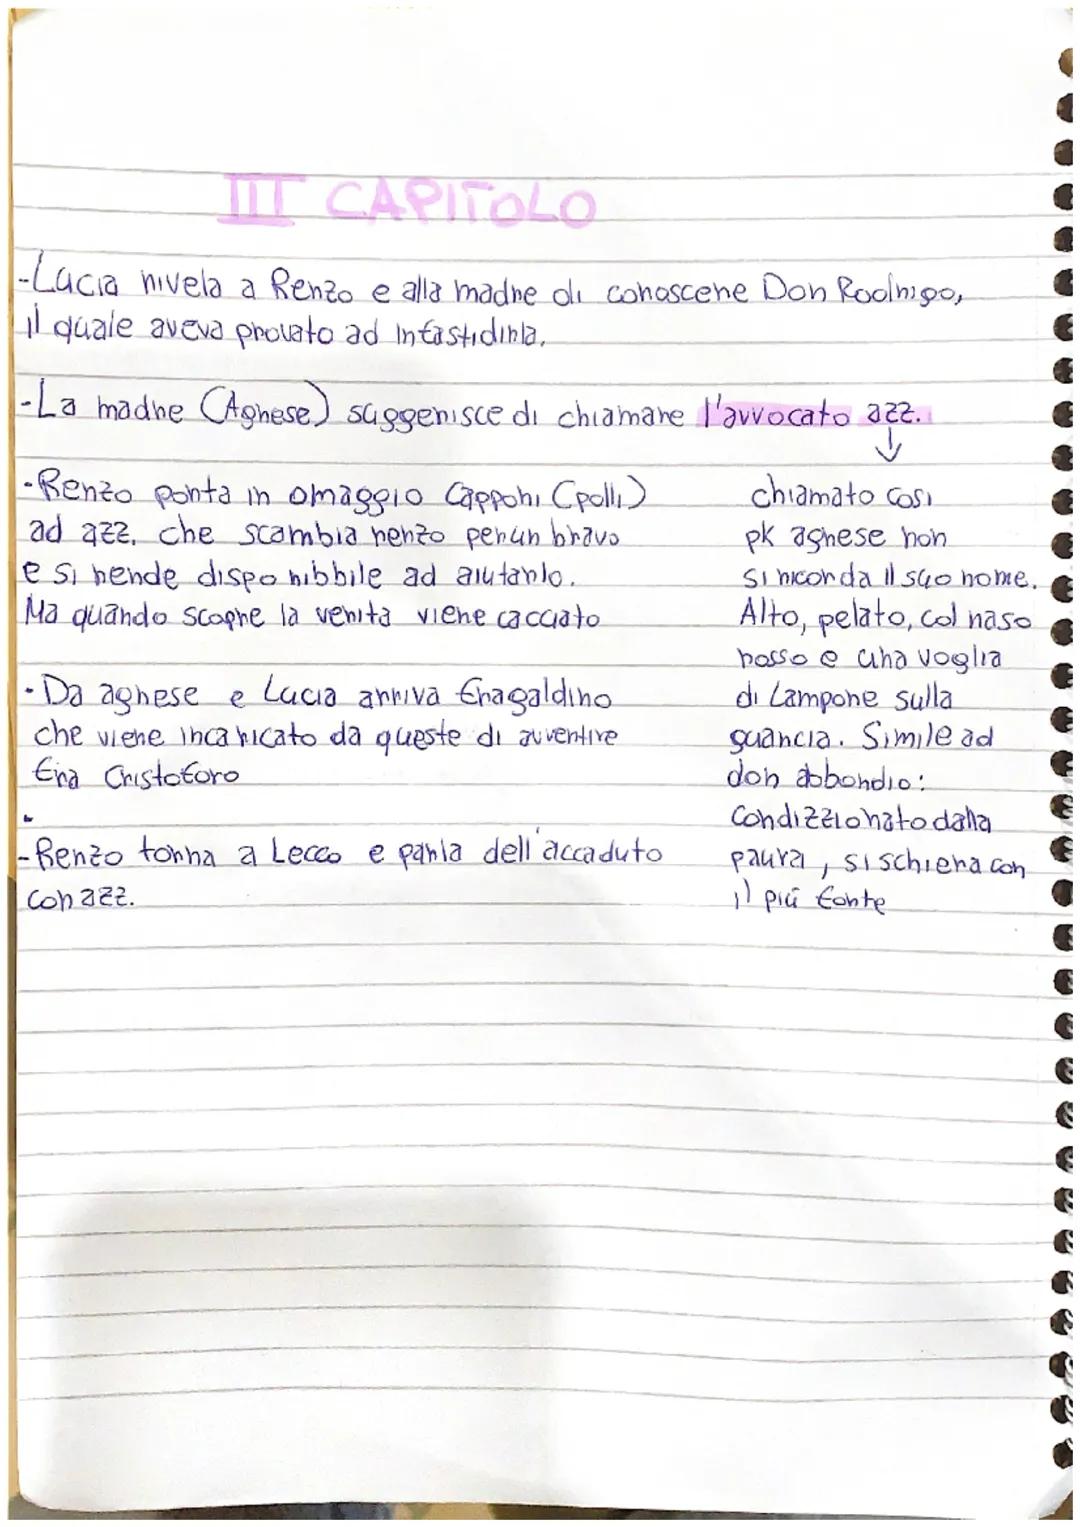 III CAPITOLO
-Lucia rivela a Renzo e alla madre di conoscere Don Rodrigo,
il quale aveva provato ad infastidirla.
-La madre (Agnese) suggerisce di chiamare l'avvocato azz.
↓
-Renzo porta in omaggio Capponi (polli)
ad azz. che scambia renzo per un bravo
e si rende disponibbile ad aiutarlo.
Ma quando scopre la verita viene cacciato
-Da agnese e Lucia arriva fragaldino
che viene incaricato da queste di avvertire
fra Cristoforo
-Renzo torna a Lecco e parla dell'accaduto
con azz.
chiamato così
pk agnese non
si ricorda il suo nome.
Alto, pelato, col naso
rosso e una voglia
di Lampone sulla
guancia. Simile ad
don abbondio:
Condizzionato dalla
paura, si schiera con
il più forte